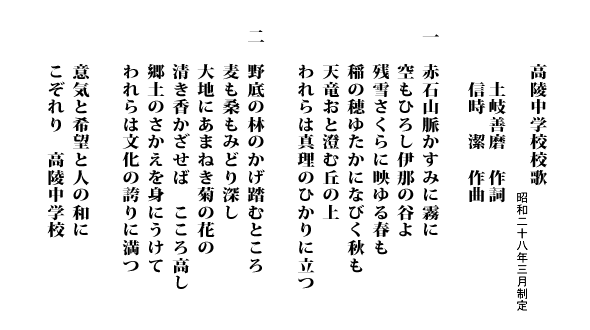 高陵中学校校歌
昭和二十八年三月制定
土岐善麿 作詞
信時 潔 作曲
一
赤石山脈かすみに霧に
空もひろし伊那の谷よ
残雪さくらに映ゆる春も
稲の穂ゆたかになびく秋も
天竜おと澄む丘の上
われらは真理のひかりに立つ
二
野底の林のかげ踏むところ
麦も桑もみどり深し
大地にあまねき菊の花の
清き香かざせば こころ高し
郷土のさかえを身にうけて
われらは文化の誇りに満つ
意気と希望と人の和に
こぞれり 高陵中学校